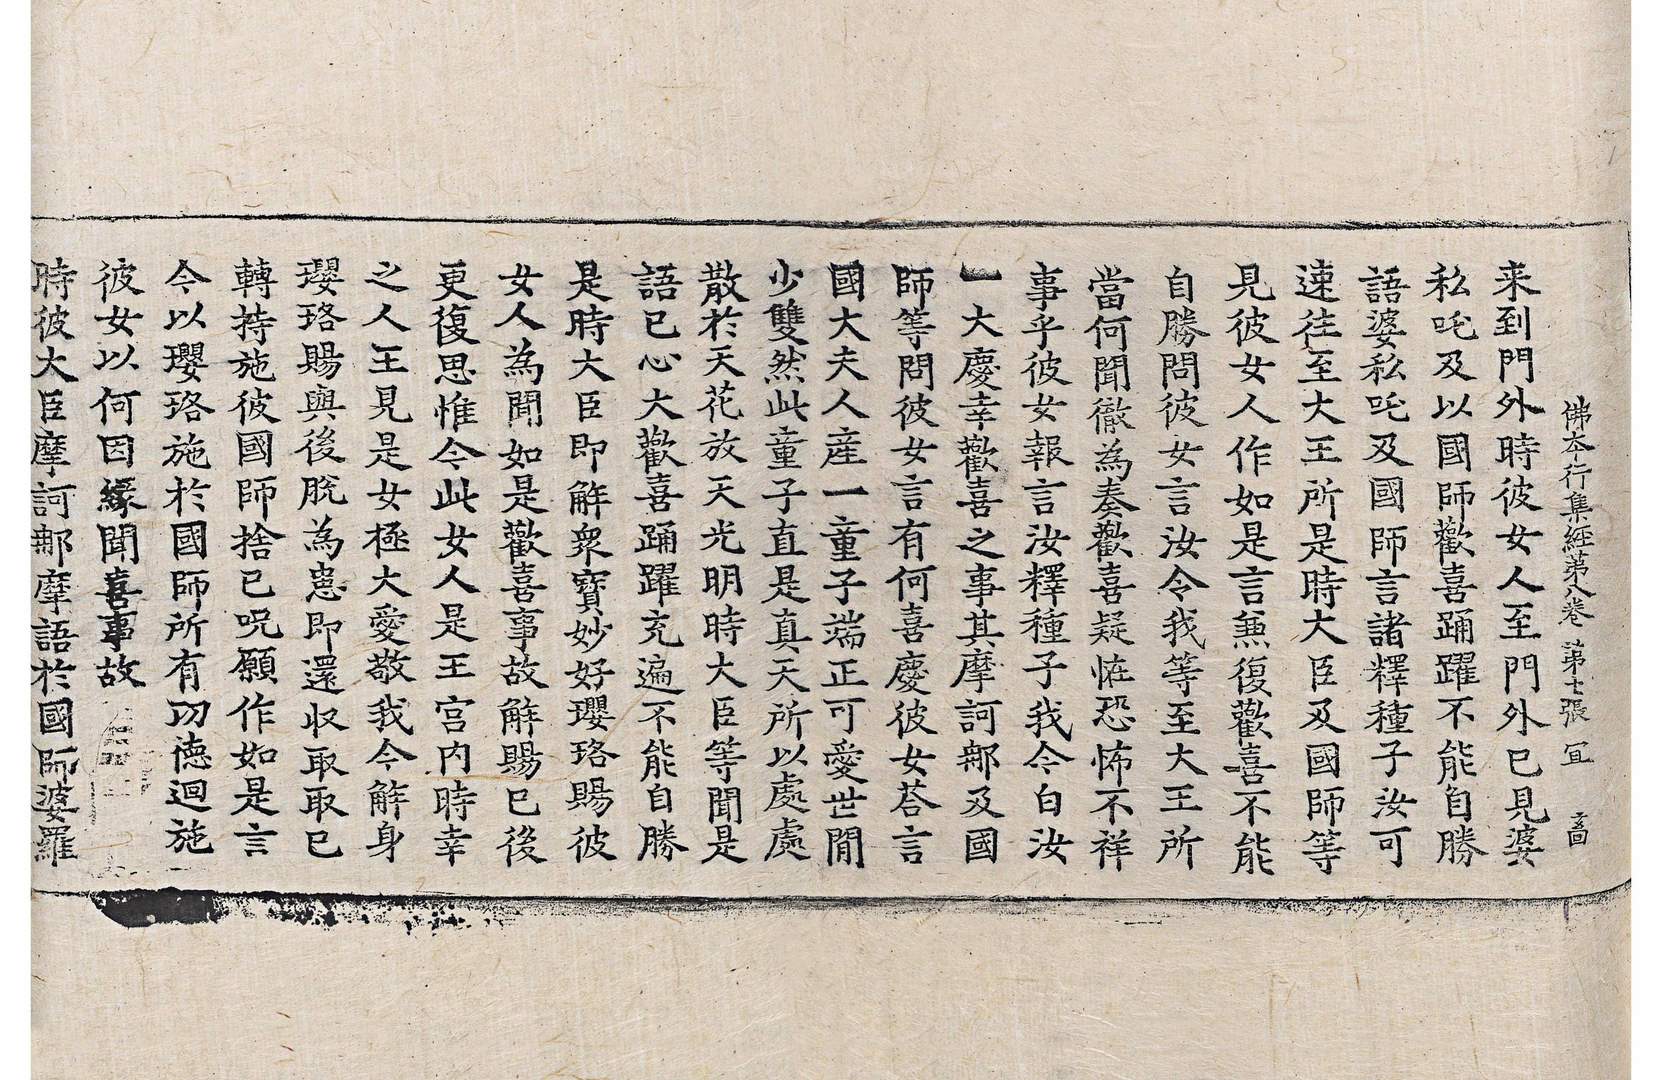 佛本行集經第八卷 第十張 冝
来到門外時彼女人至門外已見婆
私吒及以國師歡喜踊躍不能自勝
語婆私吒及國師言諸釋種子汝可
速往至大王所是時大臣及國師等
見彼女人作如是言無復歡喜不能
自勝問彼女言汝令我等至大王所
當何聞徹為奏歡喜疑恠恐怖不祥
事乎彼女報言汝釋種子我今白汝
一大慶幸歡喜之事其摩訶那及國
師等問彼女言有何喜慶彼女荅言
國大夫人産一童子端正可愛世間
少雙然此童子直是真天所以處處
散於天花放天光明時大臣等聞是
語已心大歡喜踊躍充遍不能自勝
是時大臣即解衆寶妙好瓔珞賜彼
女人為聞如是歡喜事故解賜已後
更復思惟今此女人是王宮内時幸
之人王見是女極大愛敬我今解身
瓔珞賜與後脫為恚即還収取取已
轉持施彼國師捨已呪願作如是言
今以瓔珞施於國師所有㓛德迴施
彼女以何因緣聞喜事故
時彼大臣摩訶那摩語於國師婆羅